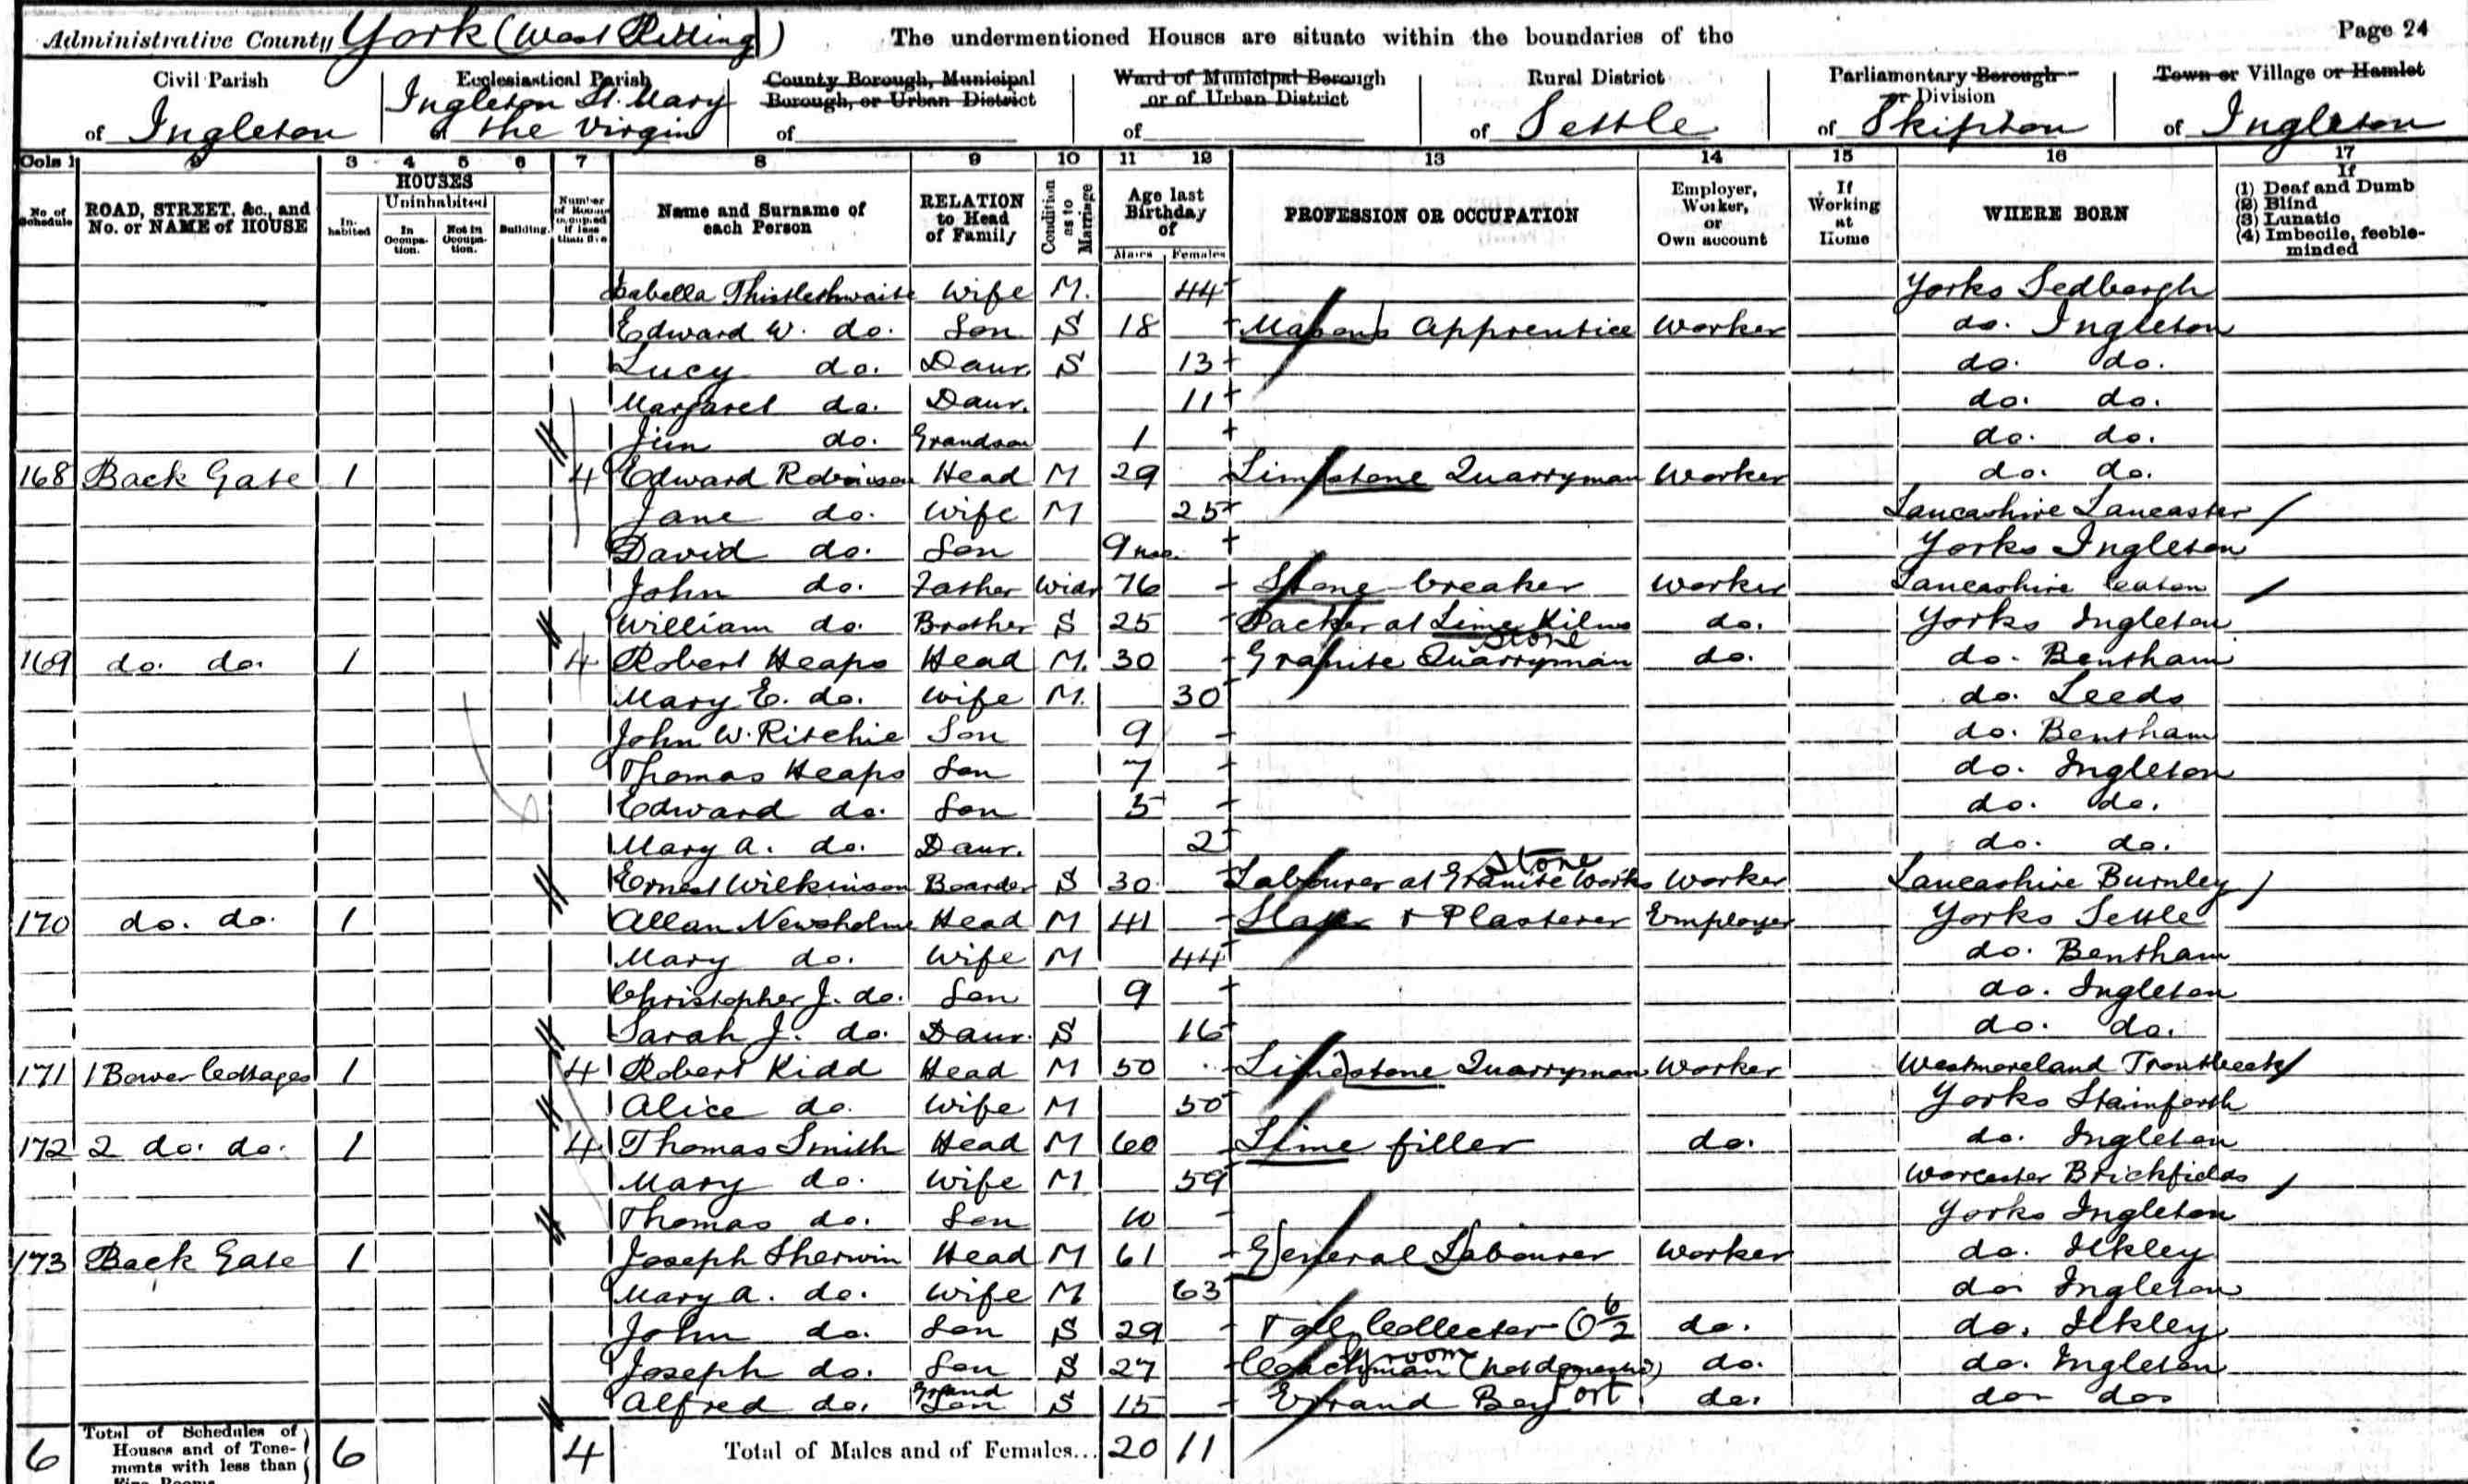 Administrative County York (West Riding) The undermentioned Houses are situate within the boundaries of the Page 24
Civil Parish Ecclesiastical Parish County Borough, Municipal Ward of Municipal Borough Rural District Parliamentary Borough Town or Village or Hamlet
Ingleton St. Mary Borough, or Urban District or of Urban District or Division
of Ingleton of the Virgin of of of Settle of Skipton of Ingleton
Cols 1 2 3 4 5 6 7 8 9 10 11 12 13 14 15 16 17
No. of Schedule ROAD, STREET, &c., and No. or NAME of HOUSE HOUSES Inhabited Uninhabited In Occupation. Not in Occupation. Building. Number of Rooms occupied if less than five Name and Surname of each Person RELATION to Head of Family Condition as to Marriage Age last Birthday of Males Females PROFESSION OR OCCUPATION Employer, Worker, or Own account If Working at Home WHERE BORN If (1) Deaf and Dumb (2) Blind (3) Lunatic (4) Imbecile, feeble-minded
Isabella Thistlethwaite Wife M. 44 Yorks Sedbergh
Edward W. do. Son S 18 Mason's Apprentice Worker do. Ingleton
Lucy do. Daur. S 13 do. do.
Margaret do. Daur. 11 do. do.
Jim do. Grandson 1 do. do.
168 Back Gate 1 4 Edward Robinson Head M 29 Limestone Quarryman Worker do. do.
Jane do. Wife M 25 Lancashire Lancaster
David do. Son 9 mo. Yorks Ingleton
John do. Father Widr 76 Stone breaker Worker Lancashire Caton
William do. Brother S 25 Packer at Lime Kilns do. Yorks Ingleton
169 do. do. 1 4 Robert Heaps Head M. 30 Granite Stone Quarryman do. do. Bentham
Mary E. do. Wife M. 30 do. Leeds
John W. Ritchie Son 9 do. Bentham
Thomas Heaps Son 7 do. Ingleton
Edward do. Son 5 do. do.
Mary A. do. Daur. 2 do. do.
Ernest Wilkinson Boarder S 30 Labourer at Granite Stone Works Worker Lancashire Burnley
170 do. do. 1 Allan Newsholme Head M 41 Slater & Plasterer Employer Yorks Settle
Mary do. Wife M 44 do. Bentham
Christopher J. do. Son 9 do. Ingleton
Sarah J. do. Daur. S 16 do. do.
171 1 Bower Cottages 1 4 Robert Kidd Head M 50 Limestone Quarryman Worker Westmoreland Troutbeck
Alice do. Wife M 50 Yorks Stainforth
172 2 do. do. 1 4 Thomas Smith Head M 60 Lime filler do. do. Ingleton
Mary do. Wife M 59 Worcester Brickfields
Thomas do. Son 10 Yorks Ingleton
173 Back Gate 1 Joseph Sherwin Head M 61 General Labourer Worker do. Ilkley
Mary A. do. Wife M 63 do. Ingleton
John do. Son S 29 Toll Collector do. do. Ilkley
Joseph do. Son S 27 Coachman Groom (not domestic) do. do. Ingleton
Alfred do. Grand Son S 15 Errand Boy Port do. do. do.
6 Total of Schedules of Houses and of Tenements with less than Five Rooms 6 4 Total of Males and of Females... 20 11